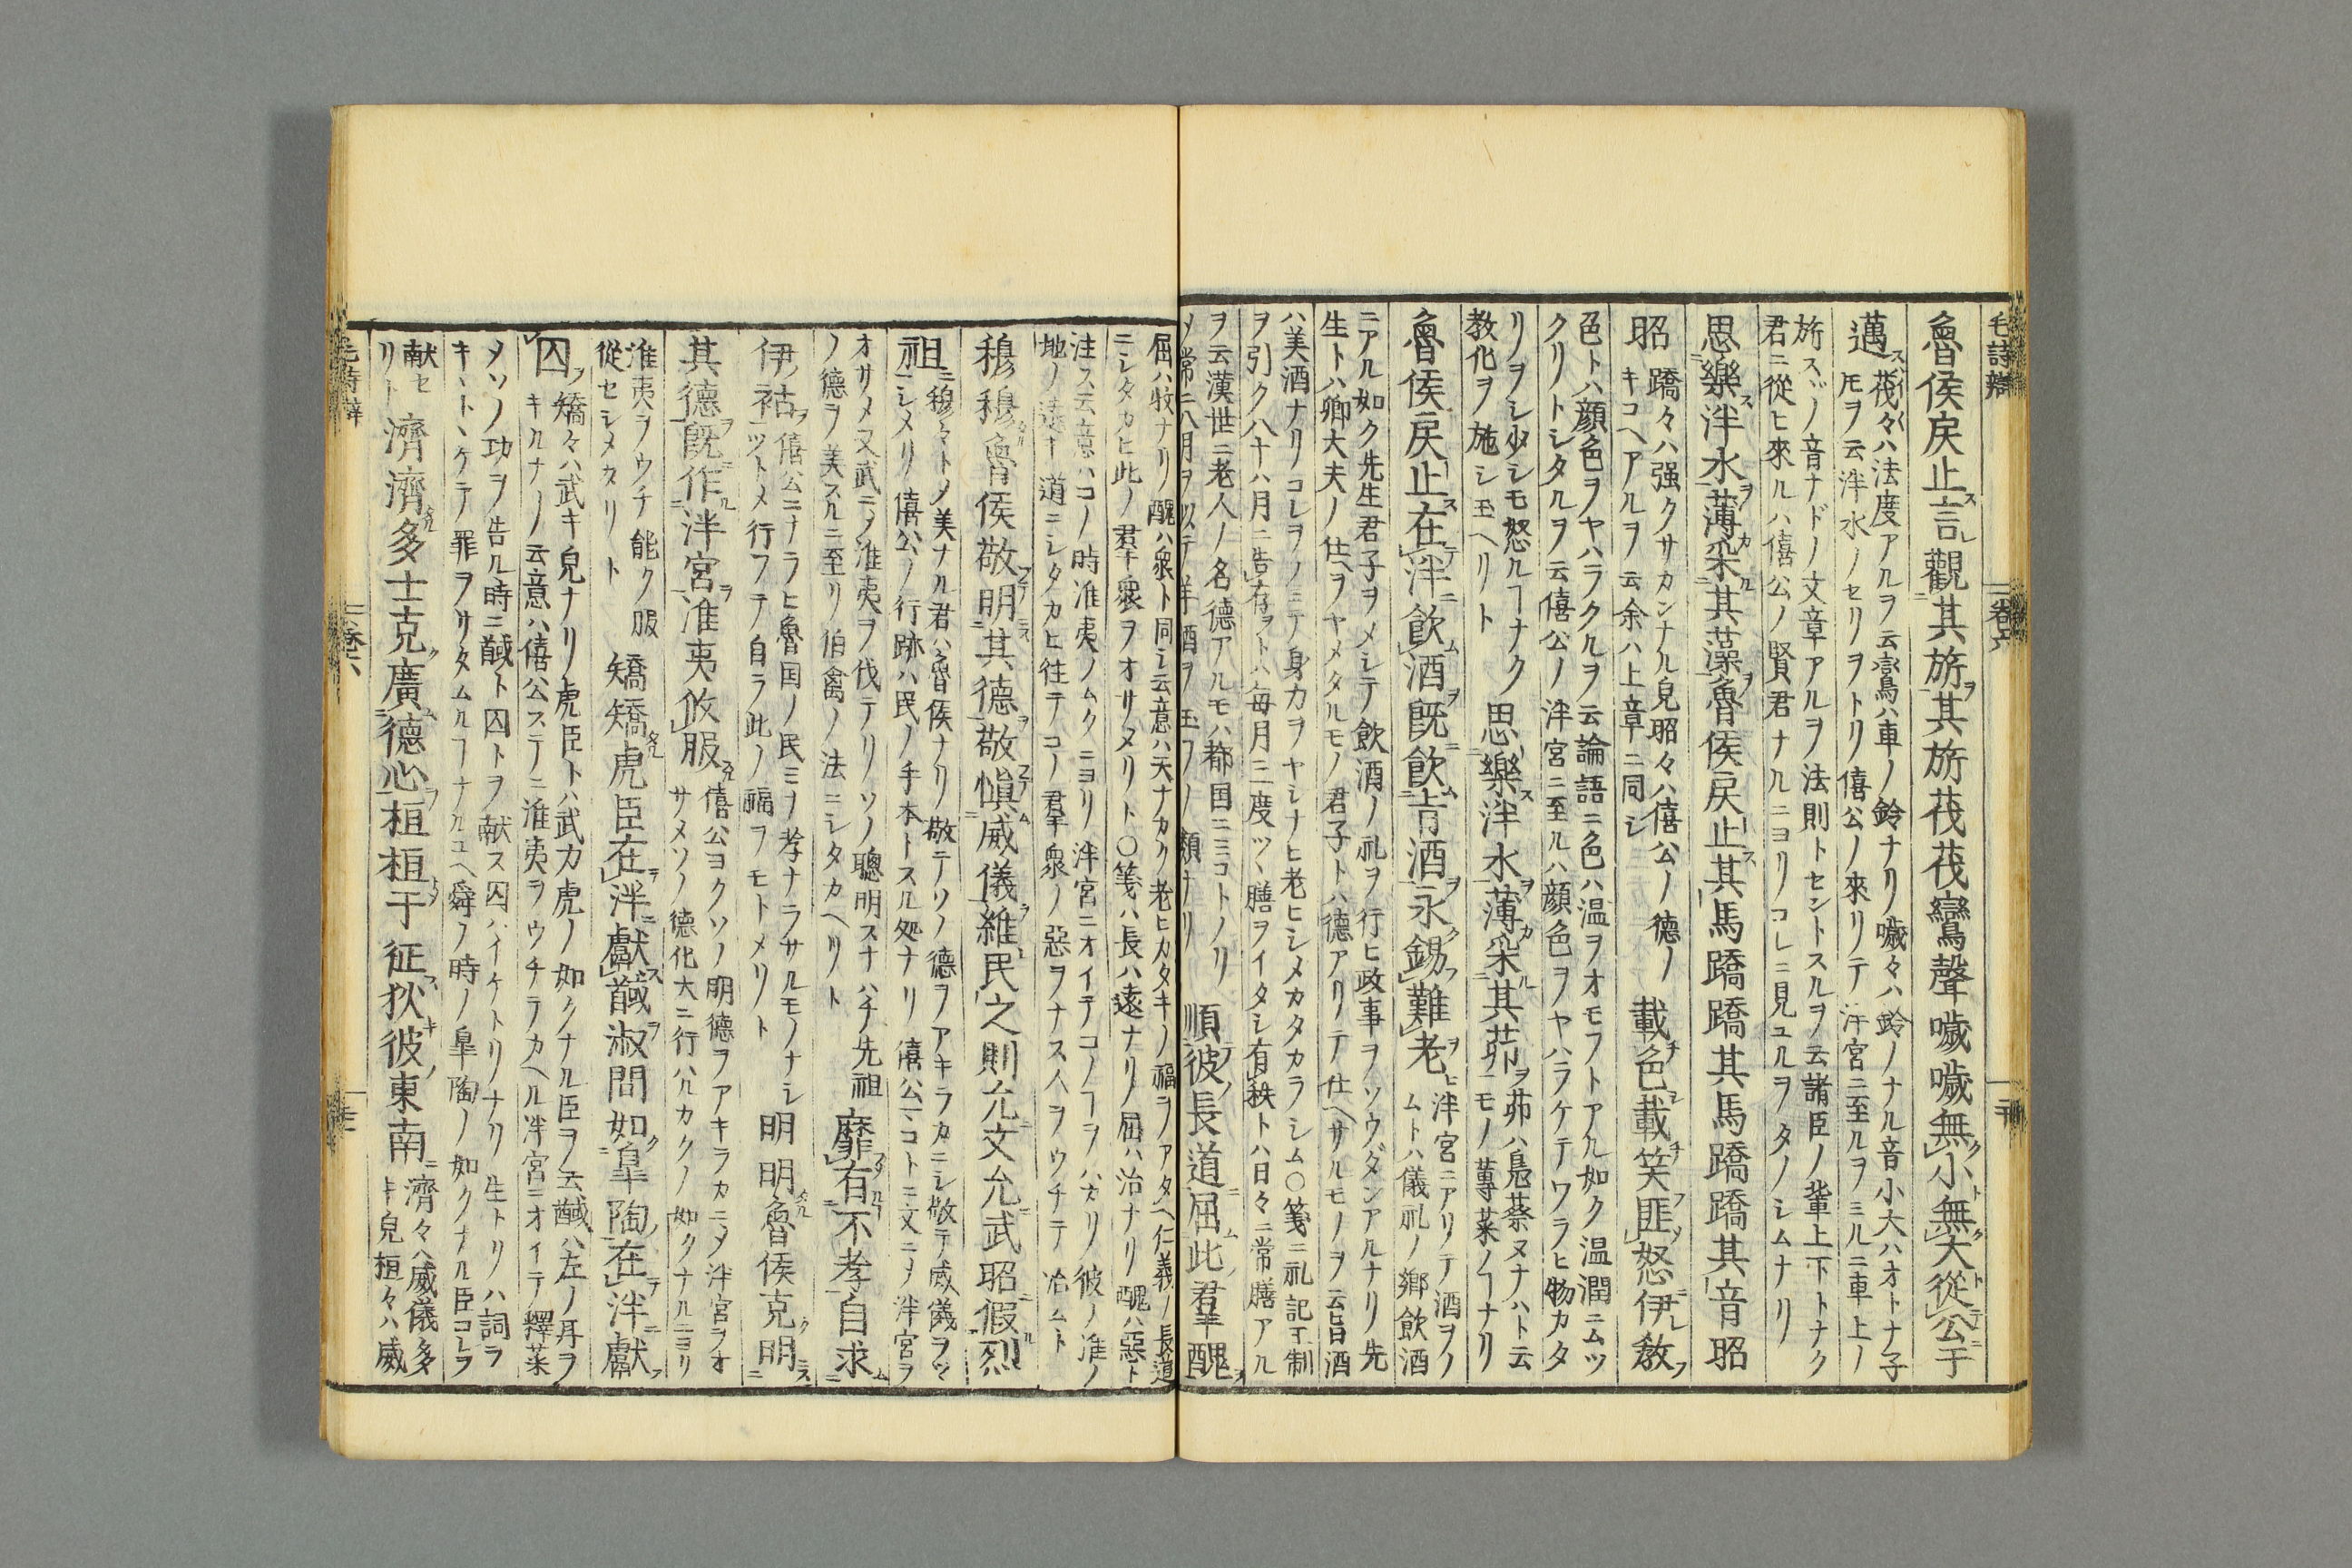 毛詩辯 卷六
魯侯戻止言觀其旂其旂茷茷鸞聲噦噦無小無大從公于
邁 茷々ハ法度アルヲ云鸞ハ車ノ鈴ナリ噦々ハ鈴ノナル音小大ハオトナ子
𪜈ヲ云泮水ノセリヲトリ僖公ノ來リテ泮宮ニ至ルヲミルニ車上ノ
旂スヾノ音ナドノ文章アルヲ法則トセントスルヲ云諸臣ノ輩上下トナク
君ニ從ヒ來ルハ僖公ノ賢君ナルニヨリノコレニ見ユルヲタノシムナリ
思樂泮水薄采其藻魯侯戻止其馬蹻蹻其馬蹻蹻其音昭
昭 蹻々ハ强クサカンナル皃昭々ハ僖公ノ德ノ
キコヘアルヲ云余ハ上章ニ同シ
載色載笑匪怒伊敎
色トハ顔色ヲヤハラクルヲ云論語ニ色ハ温ヲオモフトアル如ク温潤ニムツ
クリトシタルヲ云僖公ノ泮宮ニ至ルハ顔色ヲヤハラケテワラヒ物カタ
リヲシ少シモ怒ルヿナク
教化ヲ施シ玉ヘリト
思樂泮水薄采其茆 茆ハ鳧葵ヌナハト云
モノ蓴菜ノヿナリ
魯侯戻止在泮飮酒旣飮旨酒永錫難老 泮宮ニアリテ酒ヲノ
ムトハ儀礼ノ鄕飮酒
ニアル如ク先生君子ヲメシテ飮酒ノ礼ヲ行ヒ政事ヲソウダンアルナリ先
生トハ卿大夫ノ仕ヘヲヤメタルモノ君子トハ德アリテ仕ヘサルモノヲ云旨酒
ハ美酒ナリコレヲノミテ身力ヲヤシナヒ老ヒシメカタカラシム○箋ニ礼記王制
ヲ引ク八十ハ月ニ告存ヲトハ毎月三度ツヽ膳ヲイタシ有秩トハ日々ニ常膳アル
ヲ云漢世ニ老人ノ名德アルモハ都国ニミコトノリ
メ常ニ八月ヲ以テ羊酒ヲ玉フノ類ナリ
順彼長道屈此羣醜
屈ハ收ナリ醜ハ衆ト同シ云意ハ天ナカク老ヒカタキノ福ヲノアタヘ仁義ノ長道
ニシタカヒ此ノ羣衆ヲオサメリト○箋ハ長ハ遠ナリノ屈ハ治ナリ醜ハ惡ト
注ス云意ハコノ時淮夷ノムクニヨリ泮宮ニオイテコノヿヲハカリ彼ノ淮ノ
地ノ遠キ道ニシタカヒ往テコノ羣衆ノ惡ヲナス人ヲウチテ治ムト
穆穆魯侯敬明其德敬愼威儀維民之則允文允武昭假烈
祖 穆々トノ美ナル君ハ魯侯ナリ敬テソノ德ヲアキラカニシ敬テ威儀ヲツヽ
シメリ僖公ノ行跡ハ民ノ手本トスル処ナリ僖公マコトニ文ニメ泮宮ヲ
オサメ又武ニメ淮夷ヲ伐テリソノ聰明スナハチ先祖
ノ德ヲ美スルニ至リ伯禽ノ法ニシタカヘリト
靡有不孝自求
伊祜 僖公ニナラヒ魯国ノ民ミナ孝ナラサルモノナシ
ツトメ行フテ自ラ此ノ福ヲモトメリト
明明魯侯克明
其德旣作泮宮淮夷攸服 僖公ヨクソノ明德ヲアキラカニメ泮宮ヲオ
サメソノ德化大ニ行ハルカクノ如クナルニヨリ
淮夷ヲウチ能ク服
從セシメタリト
矯矯虎臣在泮獻馘淑問如皐陶在泮獻
囚 矯々ハ武キ皃ナリ虎臣トハ武力虎ノ如クナル臣ヲ云馘ハ左ノ耳ヲ
キルナリノ云意ハ僖公ステニ淮夷ヲウチラカヘル泮宮ニオイテ釋菜
メソノ功ヲ告ル時ニ馘ト囚トヲ献ス囚ハイケトリノナリ生トリノハ詞ヲ
キヽトヽケテ罪ヲサタムルヿナルユヘ舜ノ時ノ皐陶ノ如クナル臣コレヲ
献セ
リト
濟濟多士克廣德心桓桓于征狄彼東南 濟々ハ威儀多
キ皃桓々ハ威
毛詩辯 卷六